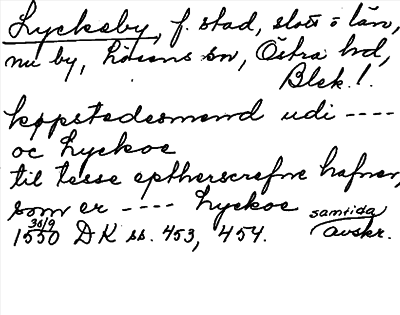 Lyckeby, f. stad, slott o län,
nu by, Lösens sn, Östra hd,
Blek. l.
køpstedesmend udi ----
oc Lyckoe
til tesse eptherscrefne hafner,
som er ---- Lyckoe
1550 30/9 DK ss. 453, 454. samtida avskr.